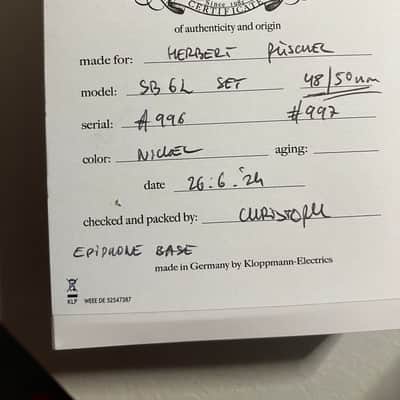 Since 1982
CERTIFICATE
of authenticity and origin
made for: HERBERT PÜSCHEL
model: SB 6L SET 48/50mm
serial: #996 #997
color: NICKEL aging:
date 26.6.'24
checked and packed by: CHRISTOPH
EPIPHONE BASE
made in Germany by Kloppmann-Electrics
KLP WEEE DE 52547387